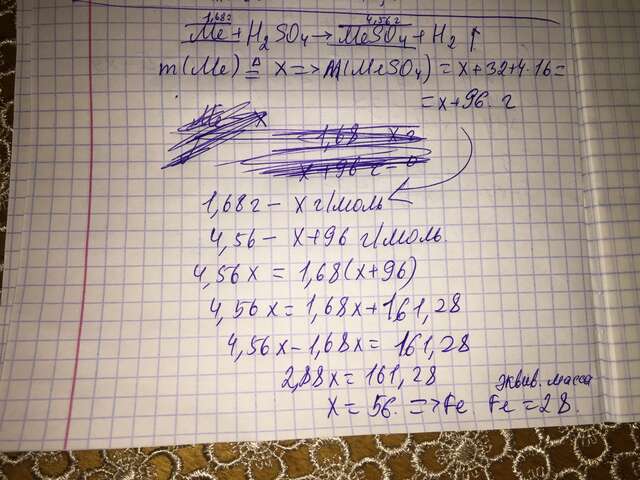 1,68г 4,56г
Me + H₂SO₄ → MeSO₄ + H₂↑
m(Me) = x => M(MeSO₄) = x+32+4·16=
= x+96 г
1,68 г – x г/моль
4,56 – x+96 г/моль
4,56x = 1,68(x+96)
4,56x = 1,68x + 161,28
4,56x – 1,68x = 161,28
2,88x = 161,28
x = 56 => Fe
эквив. масса
Fe = 28.